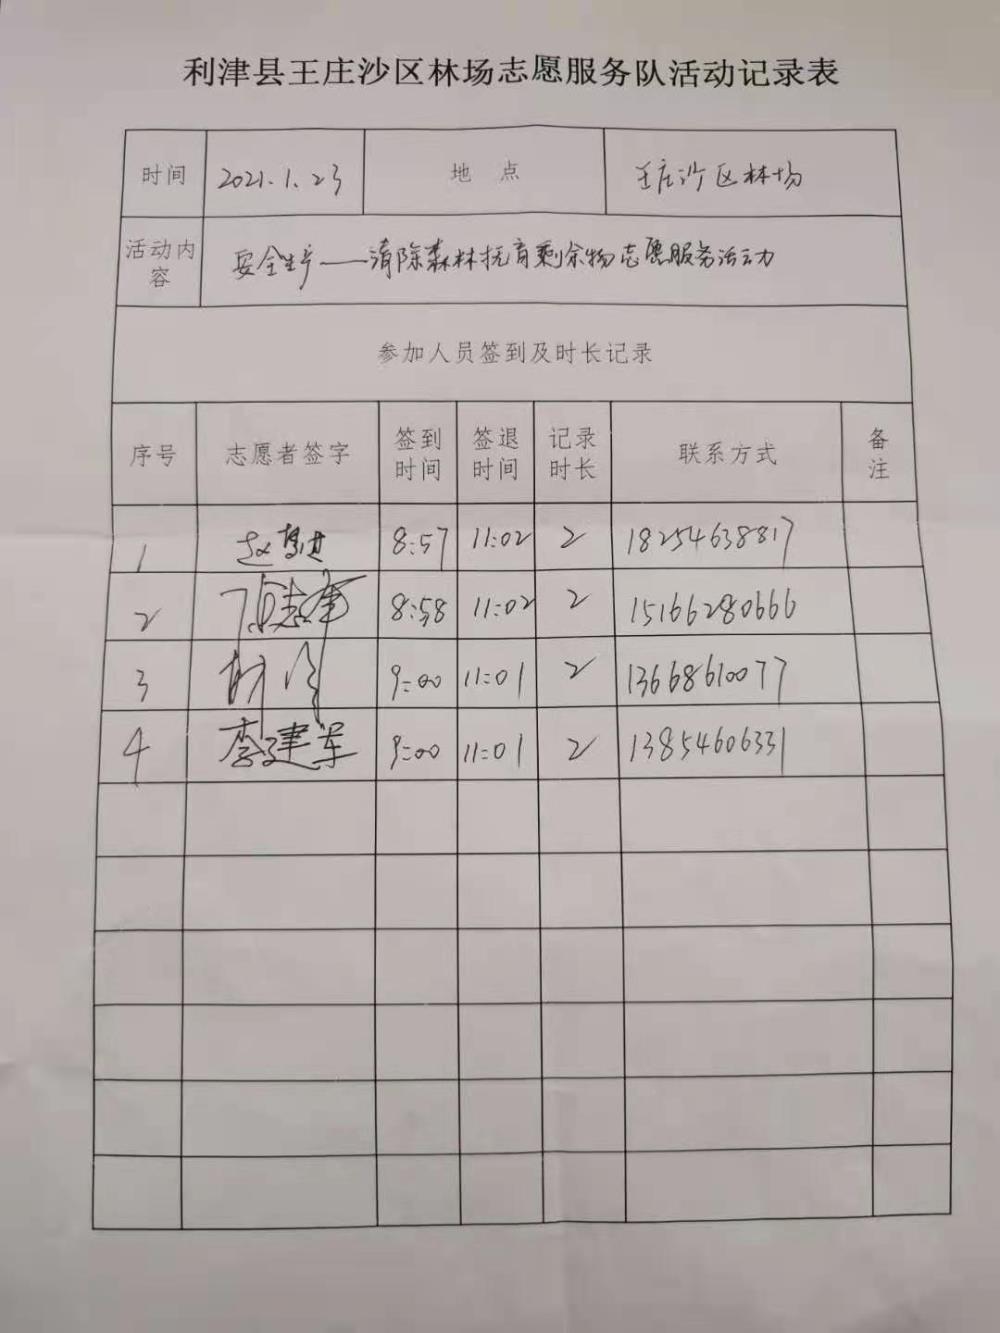 利津县王庄沙区林场志愿服务队活动记录表
时间 2021.1.23 地 点 王庄沙区林场
活动内容 安全生产——清除森林抚育剩余物志愿服务活动
参加人员签到及时长记录
序号 志愿者签字 签到时间 签退时间 记录时长 联系方式 备注
1 赵 8:57 11:02 2 18254638817
2 志军 8:58 11:02 2 15166280666
3 9:00 11:01 2 13668610077
4 李建军 9:00 11:01 2 13854606331